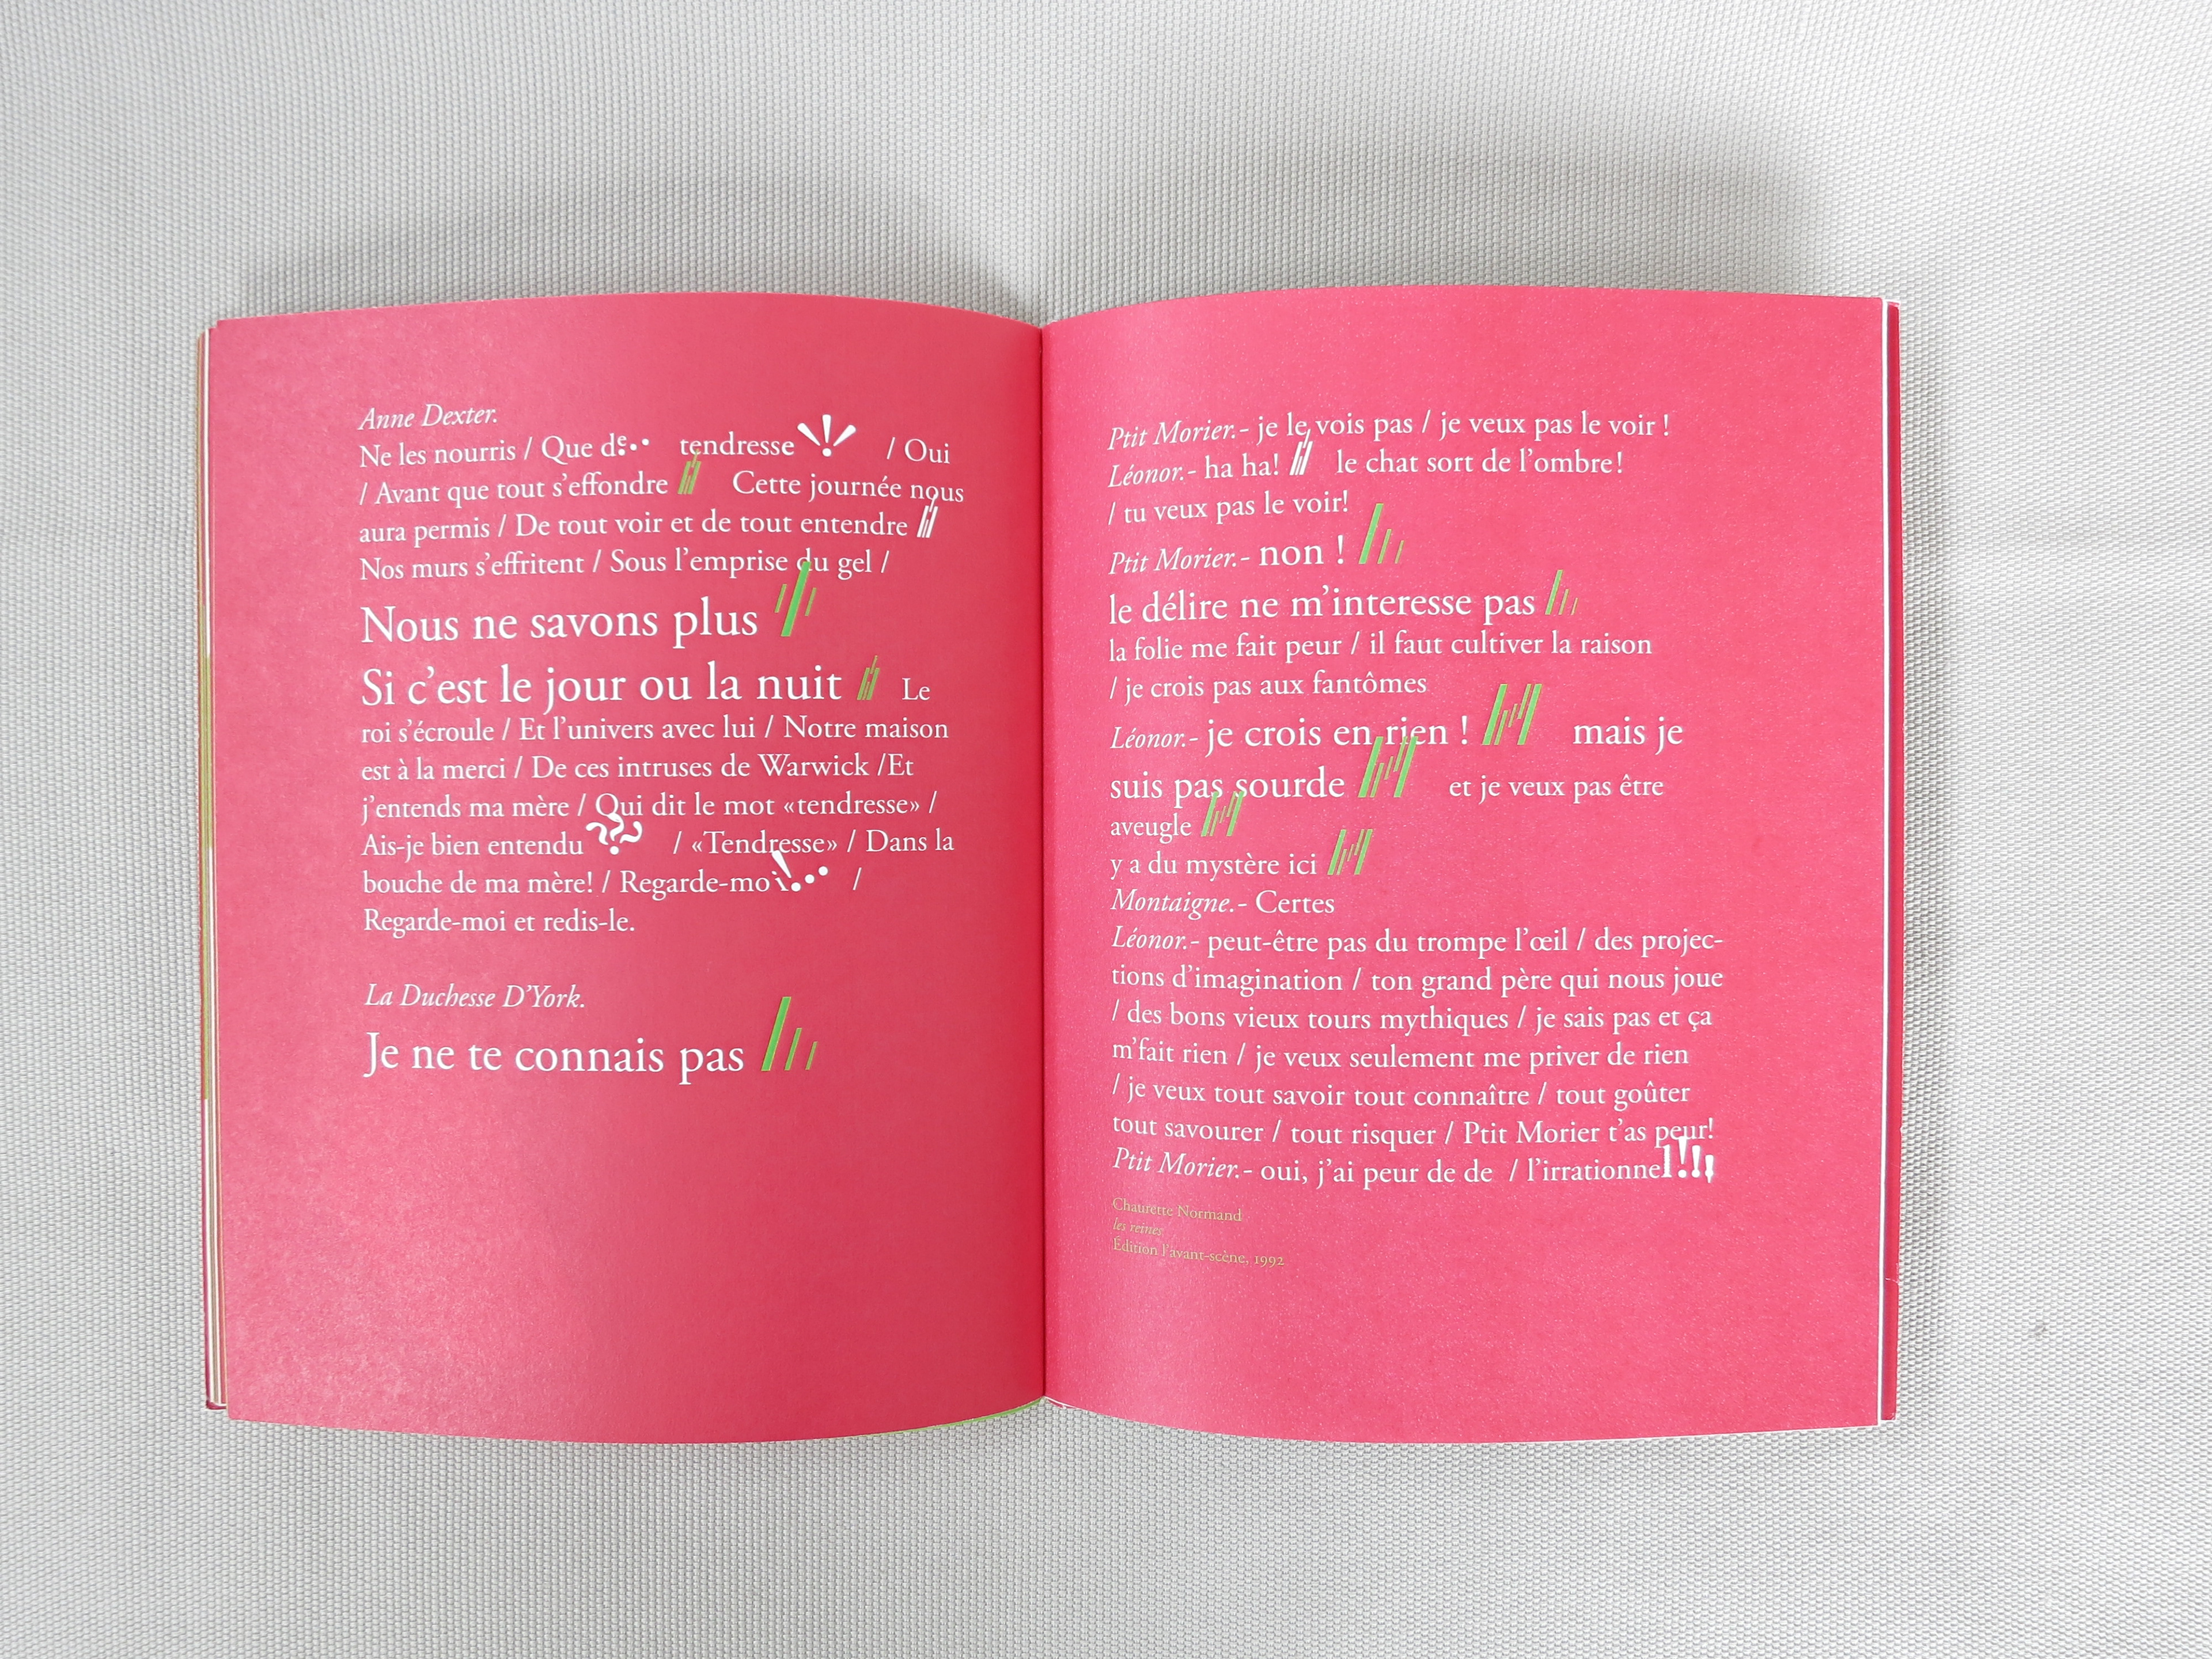 Anne Dexter.
Ne les nourris / Que de.. tendresse ! / Oui
/ Avant que tout s'effondre /// Cette journée nous
aura permis / De tout voir et de tout entendre ///
Nos murs s'effritent / Sous l'emprise du gel /
Nous ne savons plus ///
Si c'est le jour ou la nuit /// Le
roi s'écroule / Et l'univers avec lui / Notre maison
est à la merci / De ces intruses de Warwick /Et
j'entends ma mère / Qui dit le mot «tendresse» /
Ais-je bien entendu ??? / «Tendresse» / Dans la
bouche de ma mère! / Regarde-moi!.. /
Regarde-moi et redis-le.
La Duchesse D'York.
Je ne te connais pas ///
Ptit Morier.- je le vois pas / je veux pas le voir !
Léonor.- ha ha! /// le chat sort de l'ombre!
/ tu veux pas le voir!
Ptit Morier.- non ! ///
le délire ne m'interesse pas ///
la folie me fait peur / il faut cultiver la raison
/ je crois pas aux fantômes
Léonor.- je crois en rien ! /// mais je
suis pas sourde /// et je veux pas être
aveugle ///
y a du mystère ici ///
Montaigne.- Certes
Léonor.- peut-être pas du trompe l'œil / des projec-
tions d'imagination / ton grand père qui nous joue
/ des bons vieux tours mythiques / je sais pas et ça
m'fait rien / je veux seulement me priver de rien
/ je veux tout savoir tout connaître / tout goûter
tout savourer / tout risquer / Ptit Morier t'as peur!
Ptit Morier.- oui, j'ai peur de de / l'irrationnel!!!
Chaurette Normand
les reines
Édition l'avant-scène, 1992